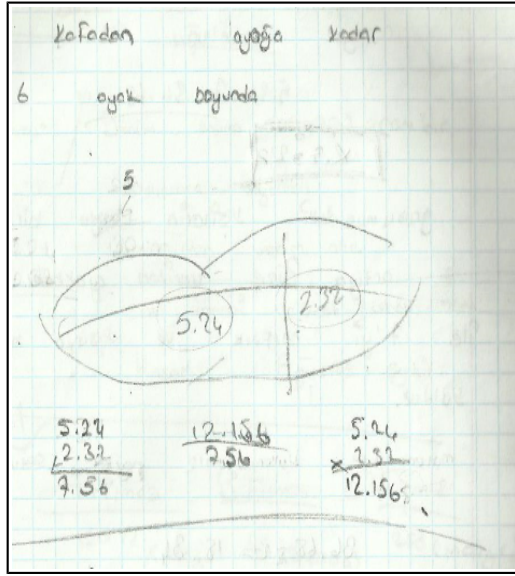 Kafadan ayağa kadar
6 ayak boyunda
5
5.24 2.32
5.24 12.156 5.24
+2.32 7.56 x 2.32
7.56 12.156